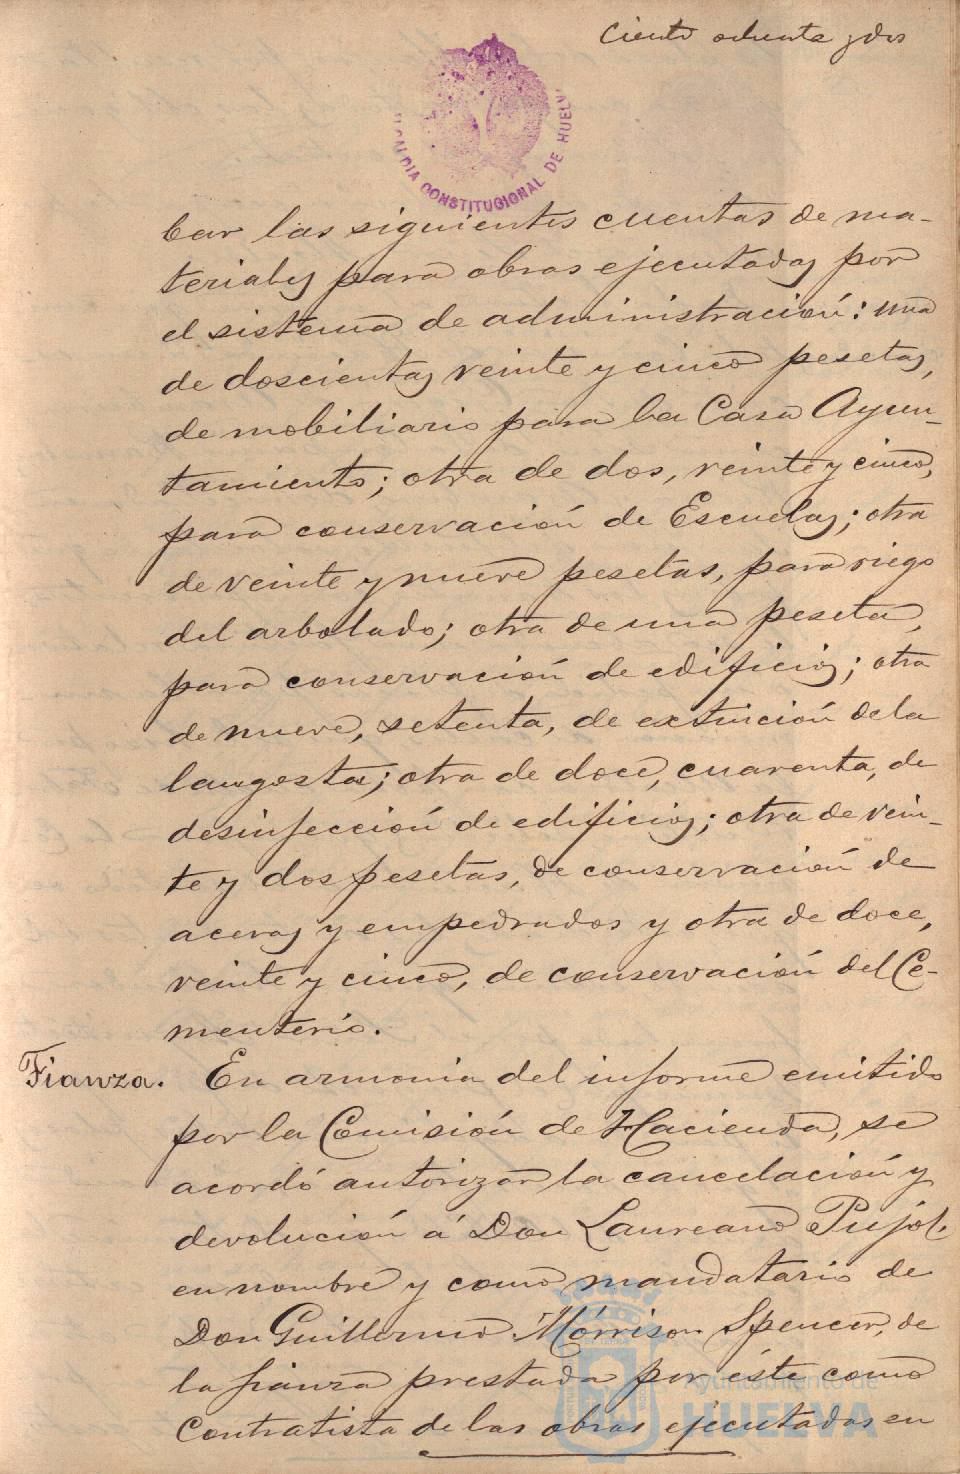 Ciento ochenta y dos
ALCALDIA CONSTITUCIONAL DE HUELVA
bar las siguientes cuentas de ma-
teriales para obras ejecutadas por
el sistema de administración: una
de doscientas veinte y cinco pesetas,
de mobiliario para la Casa Ayun-
tamiento; otra de dos, veinte y cinco,
para conservación de Escuelas; otra
de veinte y nueve pesetas, para riego
del arbolado; otra de una peseta,
para conservación de edificios; otra
de nueve, setenta, de extinción de la
langosta; otra de doce, cuarenta, de
desinfección de edificios; otra de vein-
te y dos pesetas, de conservación de
aceras y empedrados y otra de doce,
veinte y cinco, de conservación del Ce-
menterio.
Fianza. En armonia del informe emitido
por la Comisión de Hacienda, se
acordó autorizar la cancelación y
devolución á Don Laureano Pujol.
en nombre y como mandatario de
Don Guillermo Mórrison Spencer, de
la fianza prestada por éste como
Contratista de las obras ejecutadas en
Ayuntamiento de
HUELVA